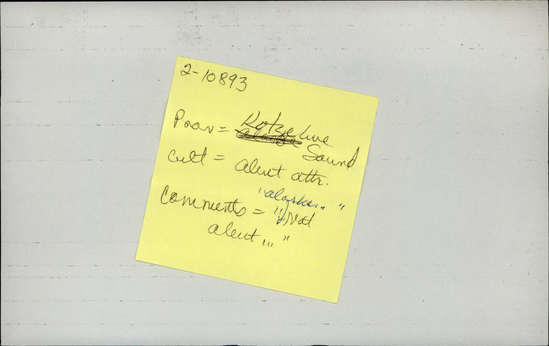 2-10893
Prov = Kotzebue
Sound
Cult = Aleut attr.
"Alaskan"
Comments = "Not
Aleut..."